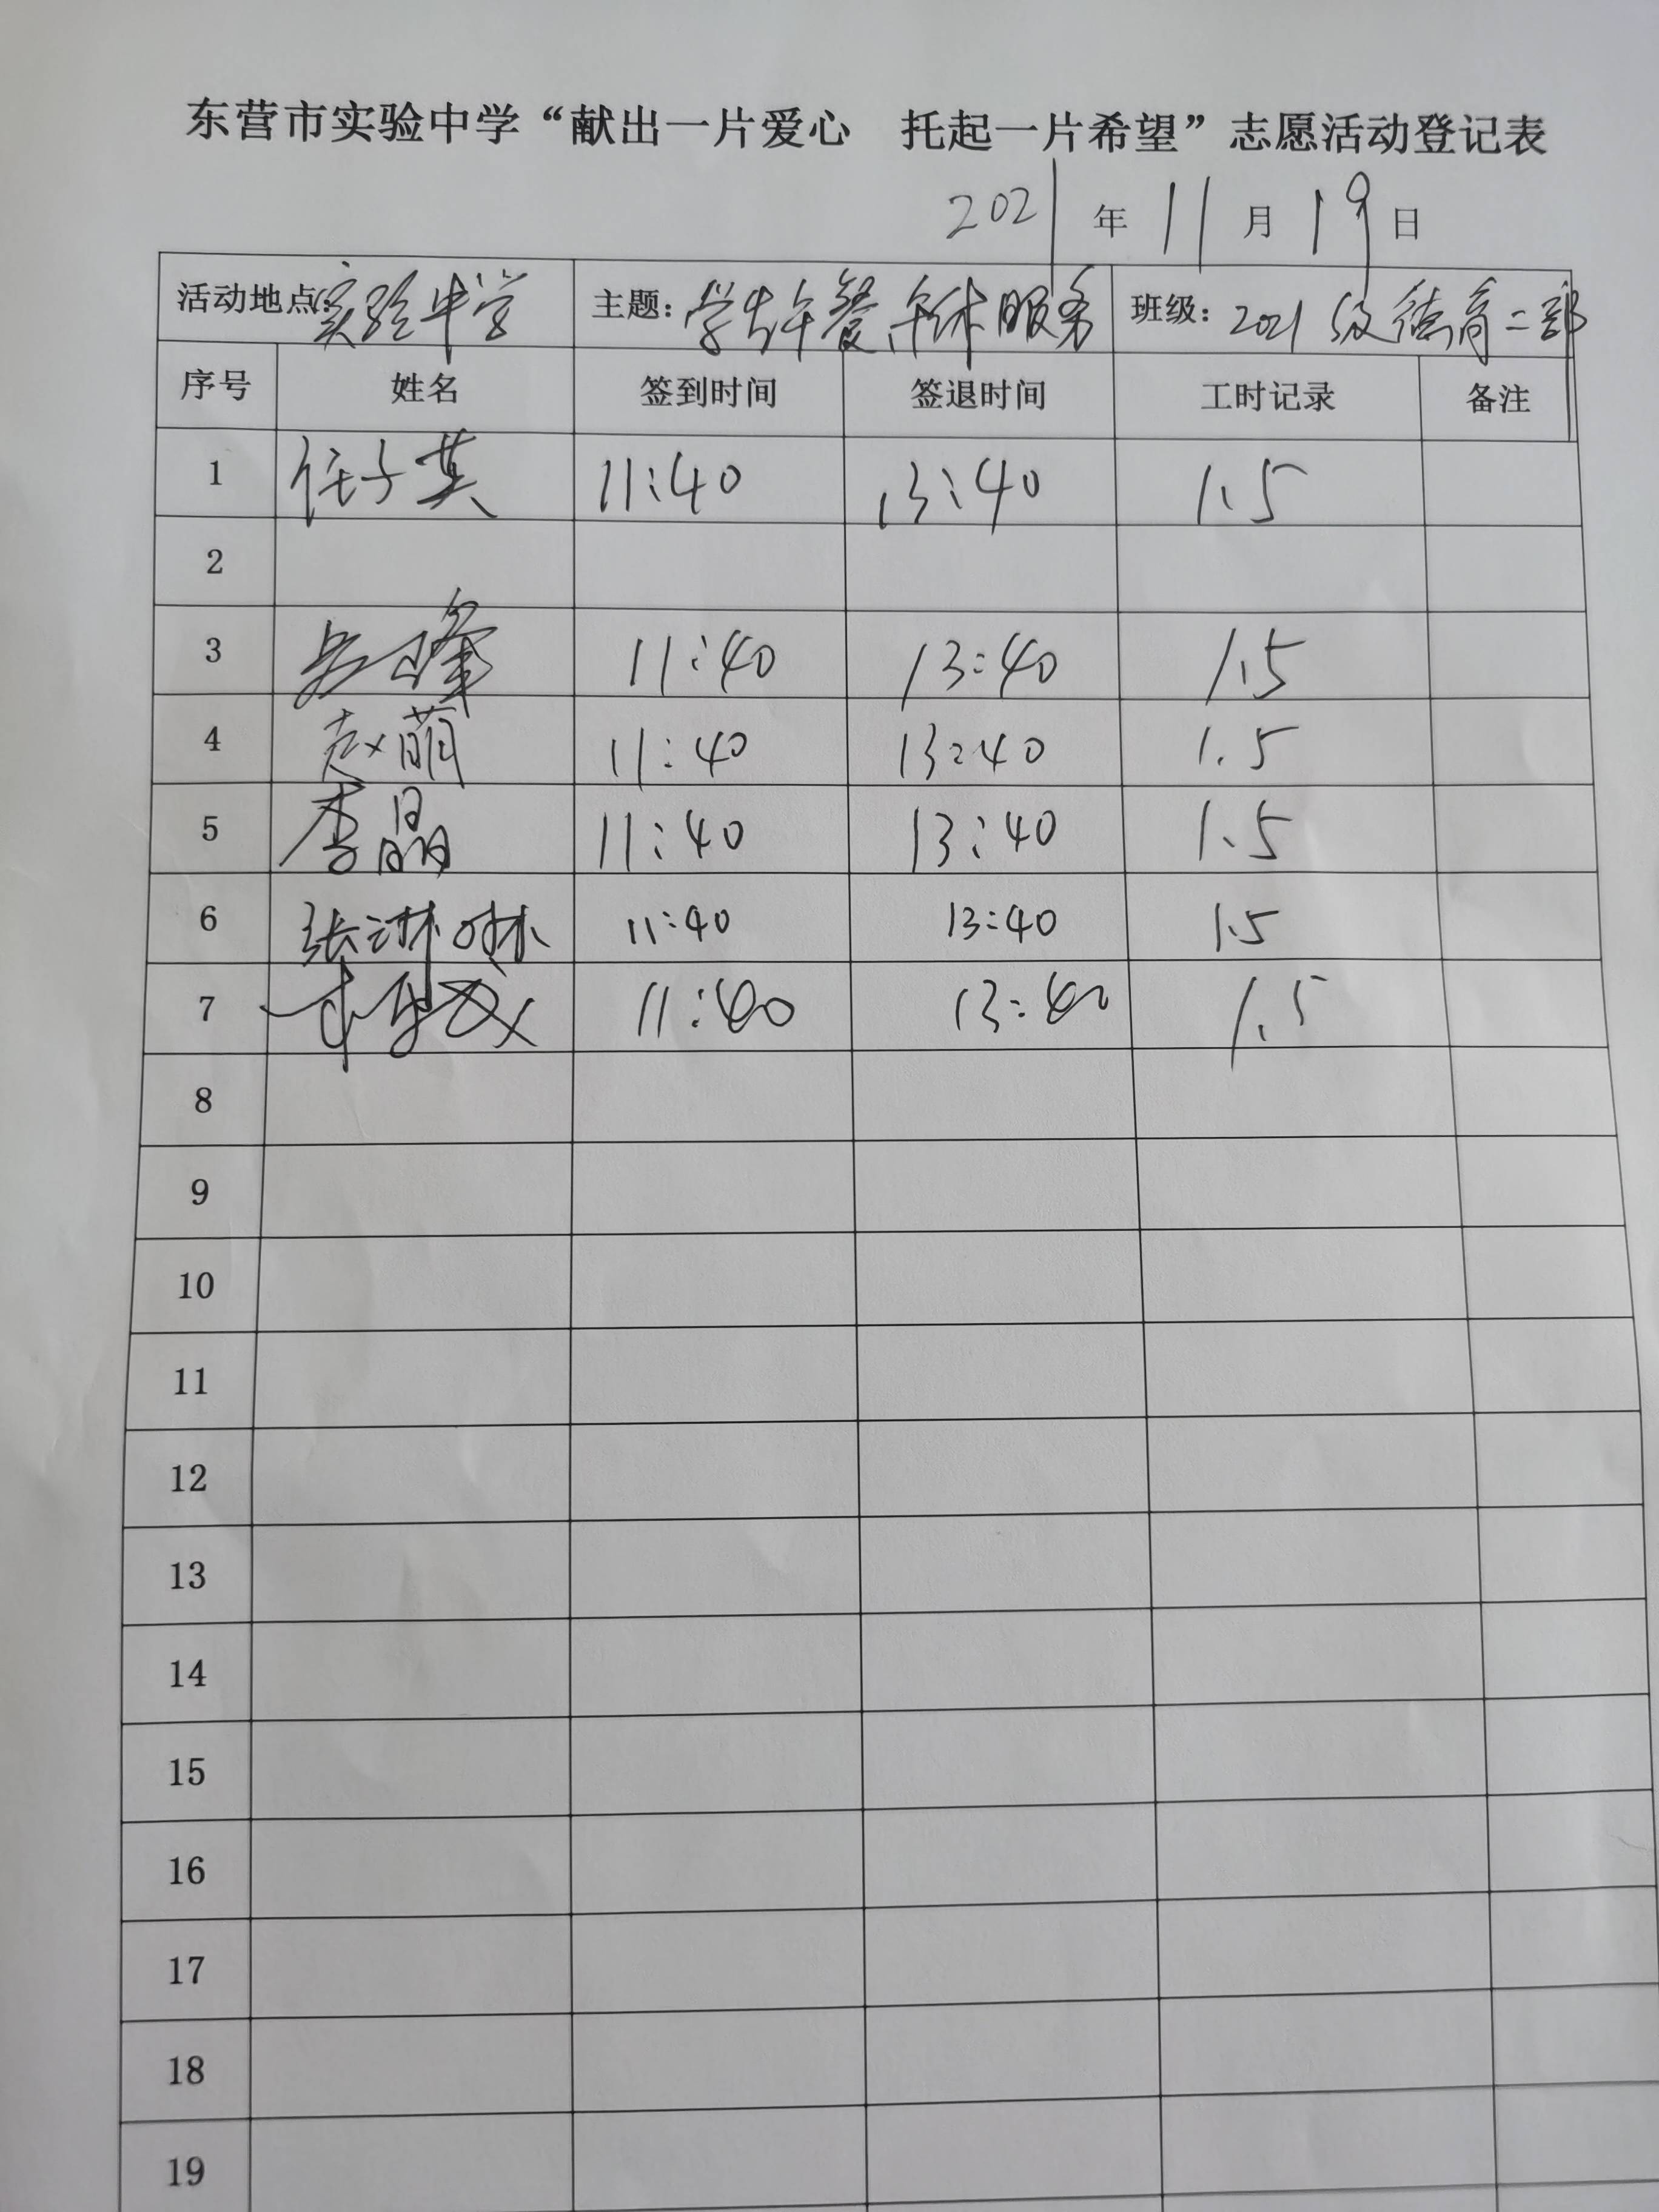 东营市实验中学“献出一片爱心 托起一片希望”志愿活动登记表
2021 年 11 月 19 日
活动地点：实验中学 主题：学生午餐午休服务 班级：2021级德育二部
序号 姓名 签到时间 签退时间 工时记录 备注
1 任子英 11:40 13:40 1.5
2
3 11:40 13:40 1.5
4 赵萌 11:40 13:40 1.5
5 李晶 11:40 13:40 1.5
6 张淋琳 11:40 13:40 1.5
7 11:40 13:40 1.5
8
9
10
11
12
13
14
15
16
17
18
19